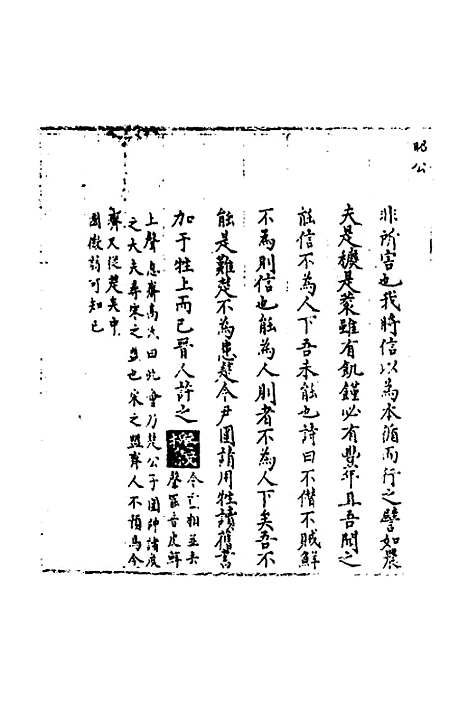 昭公
非所害也我將信以為本循而行之譬如農
夫是穮是蓘雖有飢饉必有豐年且吾聞之
能信不為人下吾未能也詩曰不僭不賊鮮
不為則信也能為人則者不為人下矣吾不
能是難楚不為患楚令尹圍請用牲讀舊書
加于牲上而已晉人許之
令丁相並去
聲區音皮鮮
上聲息齊高氏曰此會乃楚公子圍帥諸度
之大夫尋宋之盟也宋之盟齊人不預焉今
齊又從楚矣中
國微弱可知已